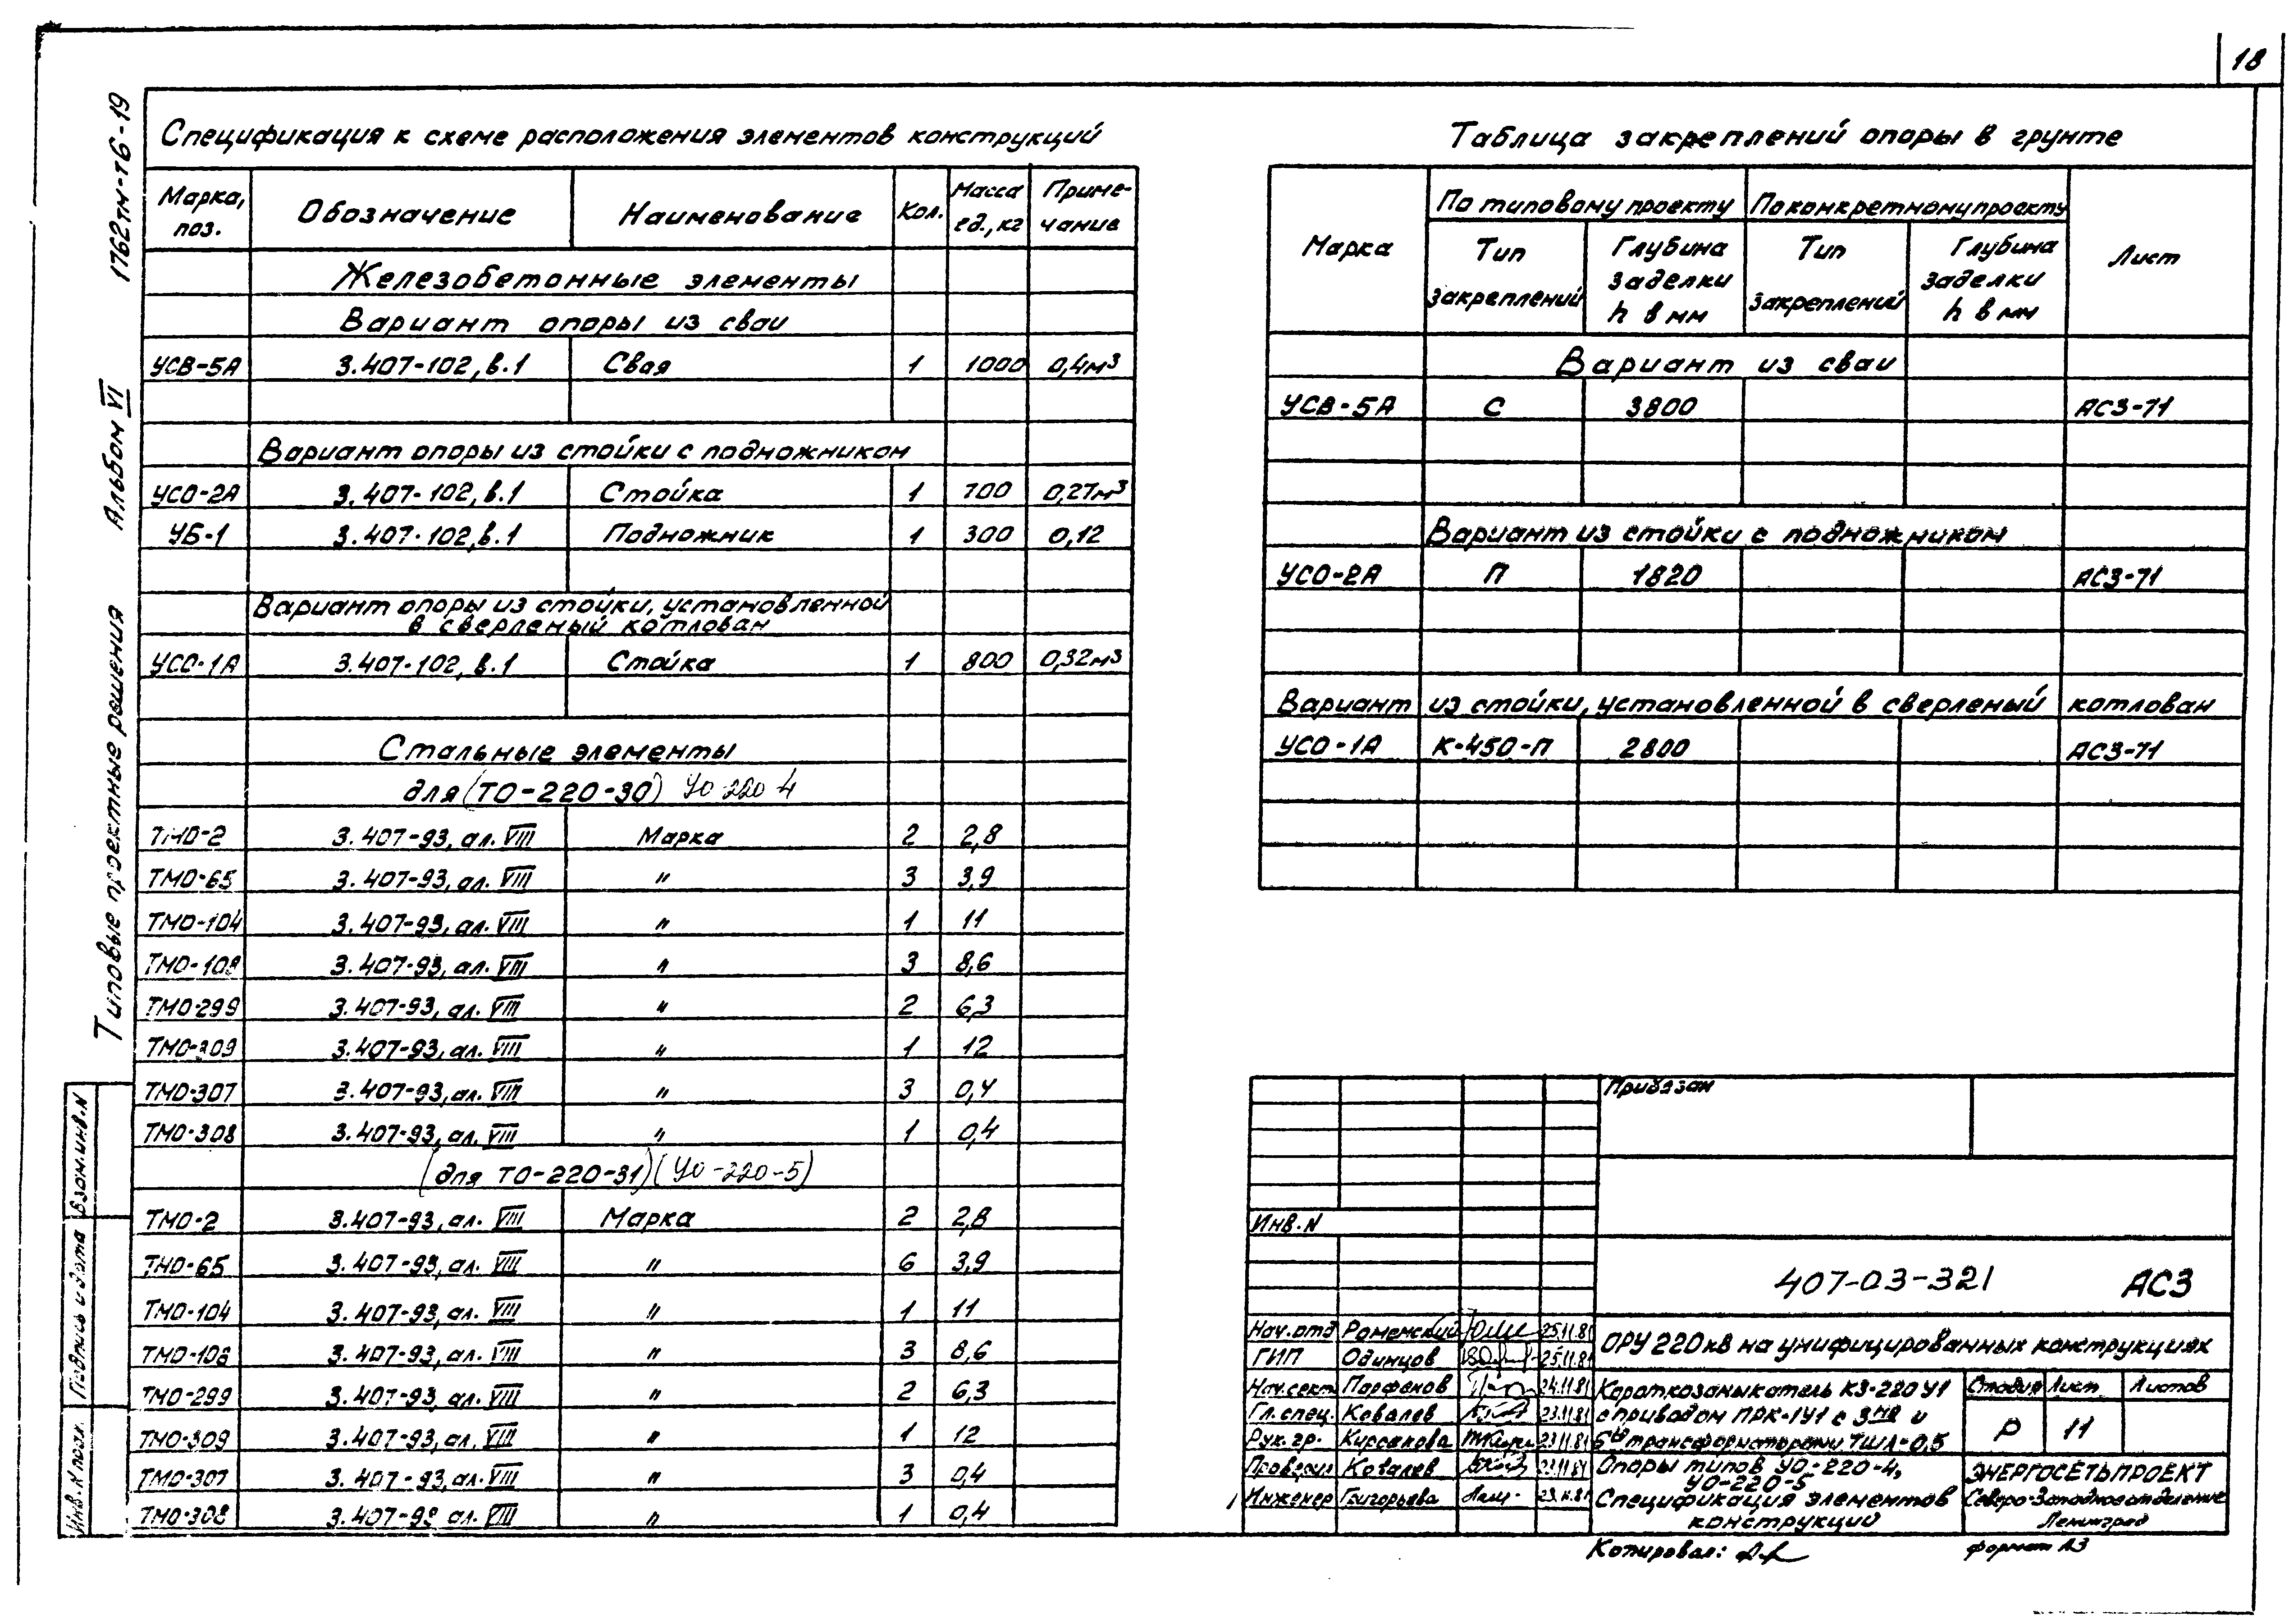 18
1762тм-т6-19
Альбом VI
Типовые проектные решения
Взам.инв.N
Подпись и дата
Инв.N подл.
Спецификация к схеме расположения элементов конструкций
Марка, поз. Обозначение Наименование Кол. Масса ед., кг Примечание
Железобетонные элементы
Вариант опоры из сваи
УСВ-5А 3.407-102, в.1 Свая 1 1000 0,4м³
Вариант опоры из стойки с подножником
УСО-2А 3.407-102, в.1 Стойка 1 700 0,27м³
УБ-1 3.407-102, в.1 Подножник 1 300 0,12
Вариант опоры из стойки, установленной
в сверленый котлован
УСО-1А 3.407-102, в.1 Стойка 1 800 0,32м³
Стальные элементы
для (ТО-220-30) УО-220-4
ТМО-2 3.407-93, ал. VIII Марка 2 2,8
ТМО-65 3.407-93, ал. VIII " 3 3,9
ТМО-104 3.407-93, ал. VIII " 1 11
ТМО-108 3.407-93, ал. VIII " 3 8,6
ТМО-299 3.407-93, ал. VIII " 2 6,3
ТМО-309 3.407-93, ал. VIII " 1 12
ТМО-307 3.407-93, ал. VIII " 3 0,4
ТМО-308 3.407-93, ал. VIII " 1 0,4
(для ТО-220-31) (УО-220-5)
ТМО-2 3.407-93, ал. VIII Марка 2 2,8
ТМО-65 3.407-93, ал. VIII " 6 3,9
ТМО-104 3.407-93, ал. VIII " 1 11
ТМО-108 3.407-93, ал. VIII " 3 8,6
ТМО-299 3.407-93, ал. VIII " 2 6,3
ТМО-309 3.407-93, ал. VIII " 1 12
ТМО-307 3.407-93, ал. VIII " 3 0,4
ТМО-308 3.407-93 ал. VIII " 1 0,4
Таблица закреплений опоры в грунте
Марка По типовому проекту По конкретному проекту Лист
Тип закреплений Глубина заделки h в мм Тип закреплений Глубина заделки h в мм
Вариант из сваи
УСВ-5А С 3800 АС3-71
Вариант из стойки с подножником
УСО-2А П 1820 АС3-71
Вариант из стойки, установленной в сверленый котлован
УСО-1А К-450-П 2800 АС3-71
Привязан
Инв.N
407-03-321 АС3
Нач.отд Роменский 25.11.81
ГИП Одинцов 25.11.81
ОРУ 220кв на унифицированных конструкциях
Нач.сект Парфенов 24.11.81
Гл.спец. Ковалев 23.11.81
Рук.гр. Кирсанова 23.11.81
Проверил Ковалев 23.11.81
Инженер Григорьева 23.11.81
Короткозамыкатель КЗ-220У1
с приводом ПРК-1У1 с 3мя и
5ю трансформаторами ТШЛ-0,5
Опоры типов УО-220-4,
УО-220-5
Спецификация элементов
конструкций
Стадия Лист Листов
Р 11
ЭНЕРГОСЕТЬПРОЕКТ
Северо-Западное отделение
Ленинград
Копировал:
формат А3